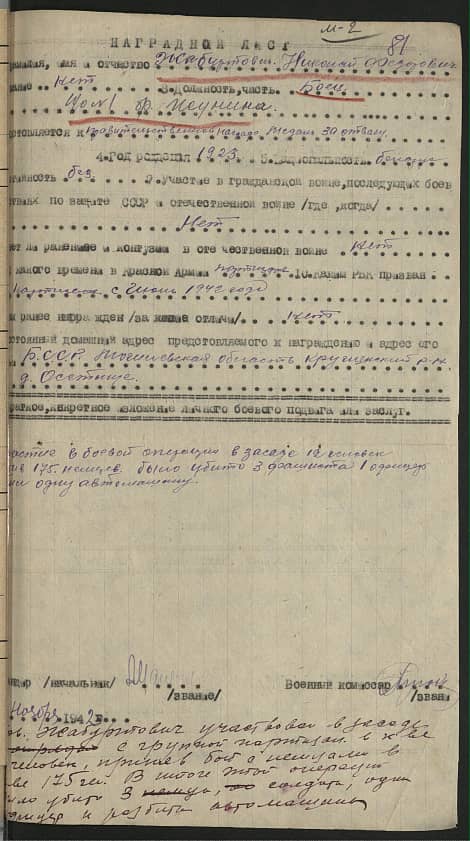 м-2
81
НАГРАДНОЙ ЛИСТ
амилия, имя и отчество Жабуртович Николай Федорович
вание нет 3. Должность, часть. Боец
по №1 Ф. Исунина.
тавляется к Правительственной награде Медаль За отвагу.
4. Год рождения 1923 5. Национальность
тийность без 7. Участие в гражданской войне, последующих боев
твиях по защите СССР и отечественной войне /где, когда/
Нет
ет ли ранение и контузии в отечественной войне нет
какого времени в Красной Армии партизан 10. Каким РВК призван
Партизан с Июня 1942 года
м ранее награжден /за какие отличия/ нет
стоянный домашний адрес представляемого к награждению и адрес его
БССР Могилевская область Круглянский р-н.
д. Осетище.
раткое, конкретное изложение личного боевого подвига или заслуг.
частие в боевой операции в засаде 12 человек
ив 175 немцев было убито 3 фашиста 1 офицер
ли одну автомашину.
ндир /начальник/ Военный комиссар
/звание/ /звани
Ноября 1942 г.
ов. Жабуртович участвовал в засаде
с группой партизан в к-ве
человек, приняв бой с немцами в
ве 175 чел. В итоге этой операции
ыло убито 3 немца, солдата, один
фицер и разбита автомашина